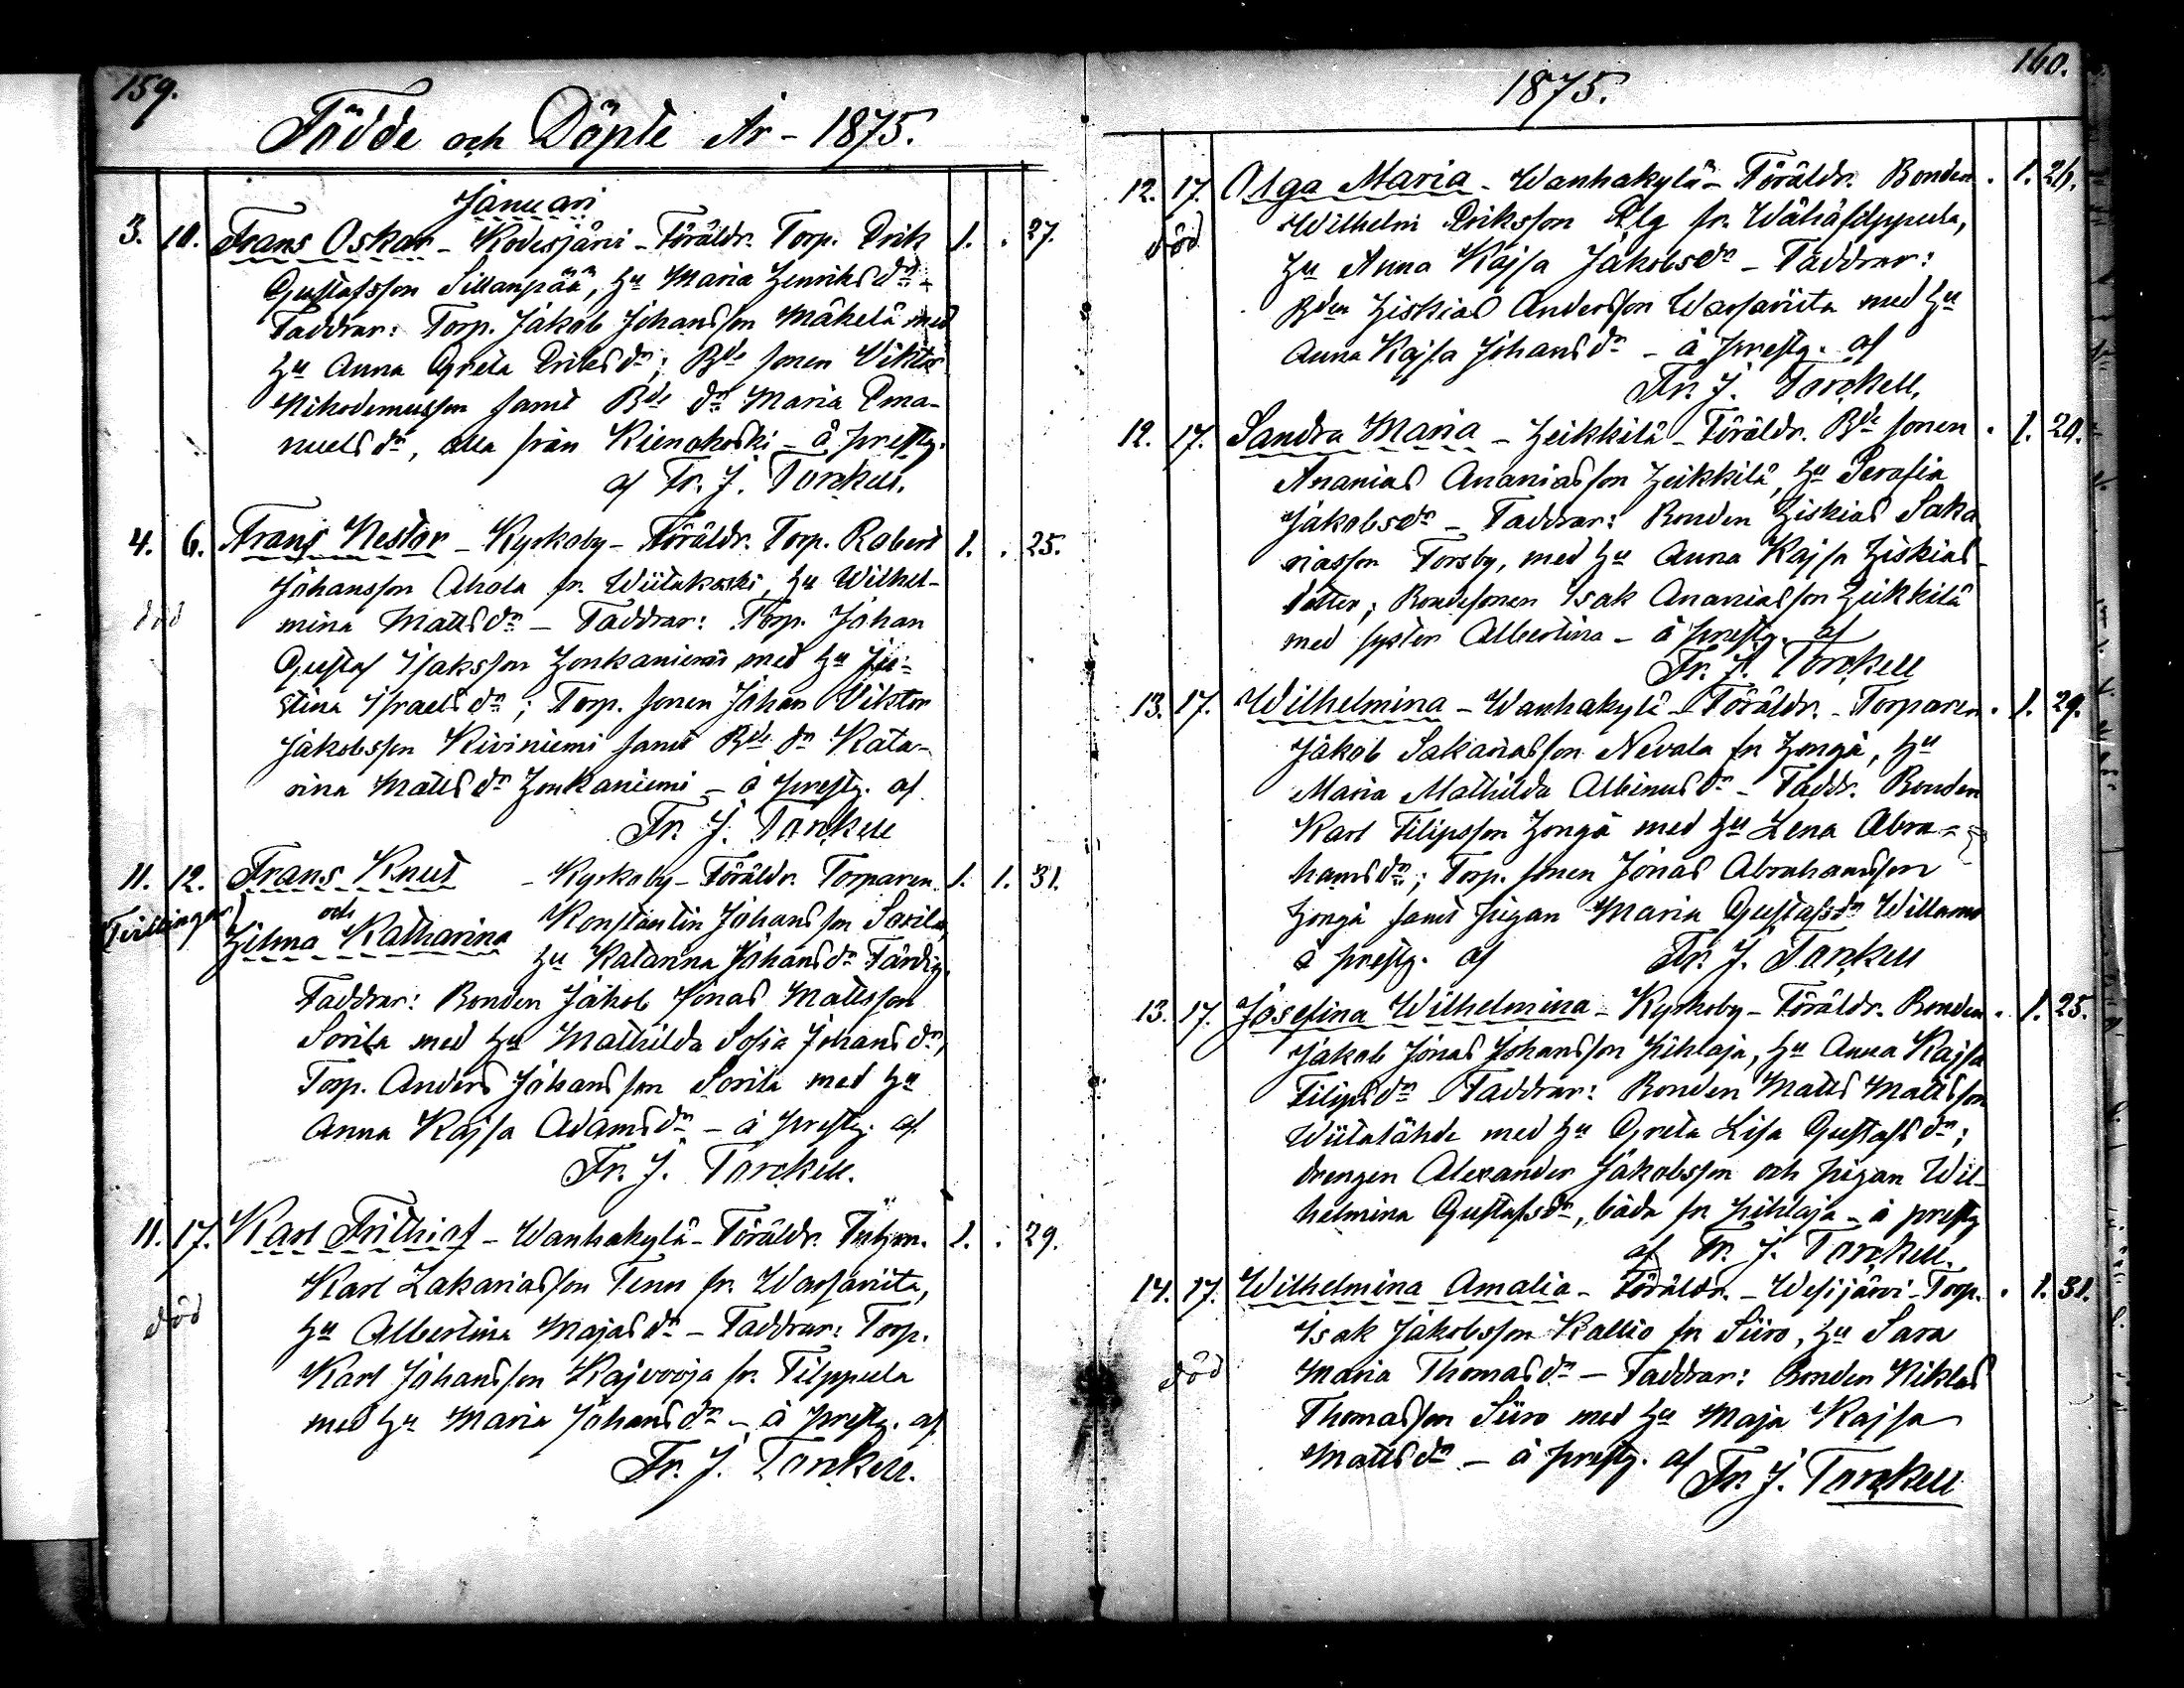 159.
Födde och Döpte År - 1875.
Januari
3. 10. Frans Oskar - Kodesjärvi - Föräldr. Torp. Erik 1. . 27.
Gustafsson Sillanpää, Hu Maria Henriksdr -
Faddrar: Torp. Jakob Johansson Mäkelä med
Hu Anna Greta Eriksdr; Bde sonen Viktor
Nikodemusson samt Bde dr Maria Ema-
nuelsdr, alla från Riena koski - å prestg.
af Fr. J. Torckell.
4. 6. Frans Nestor - Kyrkoby - Föräldr. Torp. Robert 1. . 25.
Johansson Ahola fr. Wiitakoski, Hu Wilhel-
död mina Mattsdr - Faddrar: Torp. Johan
Gustaf Isaksson Honkaniemi med Hu Ju-
stina Israelsdr; Torp. sonen Johan Viktor
Jakobsson Kiviniemi samt Bde dr Kata-
rina Mattsdr Honkaniemi - å prestg. af
Fr. J. Torckell
11. 12. Frans Knut - Kyrkoby - Föräldr. Torparen 1. 1. 31.
Tvillingar och Konstantin Johansson Sorila,
Hilma Katharina Hu Katarina Johansdr Färdig.
Faddrar: Bonden Jakob Jonas Mattsson
Sorila med Hu Mathilda Sofia Johansdr,
Torp. Anders Johansson Sorila med Hu
Anna Kajsa Adamsdr - å prestg. af
Fr. J. Torckell.
11. 17. Karl Frithiof - Wanhakylä - Föräldr. Inhm. 1. . 29.
Karl Zakariasson Tenn fr. Warsaviita,
död Hu Albertina Majasdr - Faddrar: Torp.
Karl Johansson Kajvooja fr. Filppula
med Hu Maria Johansdr - å prestg. af
Fr. J. Torckell.
160.
1875.
12. 17. Olga Maria - Wanhakylä - Föräldr. Bonden . 1. 21.
död Wilhelm Eriksson Älg fr. Wähäfilppula,
Hu Anna Kajsa Jakobsdr - Faddrar:
Bden Hiskias Andersson Warsaviita med Hu
Anna Kajsa Johansdr - å prestg. af
Fr. J. Torckell.
12. 17. Sandra Maria - Heikkilä - Föräldr. Bde sonen . 1. 20.
Ananias Ananiasson Heikkilä, Hu Serafia
Jakobsdr - Faddrar: Bonden Hiskias Saka
riasson Forsby, med Hu Anna Kajsa Hiskias-
dotter; Bondesonen Isak Ananiasson Heikkilä
med syster Albertina - å prestg. af
Fr. J. Torckell
13. 17. Wilhelmina - Wanhakylä - Föräldr. - Torparen . 1. 29.
Jakob Sakariasson Nevala fr Honga, Hu
Maria Mathilda Albinusdr - Faddr. Bonden
Karl Filipsson Honga med Hu Lena Abra-
hamsdr; Torp. sonen Jonas Abrahamsson
Honga samt pigan Maria Gustafsdr Willamo
å prestg. af Fr. J. Torckell
13. 17. Josefina Wilhelmina - Kyrkoby - Föräldr. Bonden . 1. 25.
Jakob Jonas Johansson Pihlaja, Hu Anna Kajsa
Filipsdr - Faddrar: Bonden Matts Mattsson
Wiitalähde med Hu Greta Lisa Gustafsdr;
drengen Alexander Jakobsson och pigan Wil-
helmina Gustafsdr, båda fr Pihlaja - å prestg
af Fr. J. Torckell.
14. 17. Wilhelmina Amalia - Föräldr. - Wesijärvi - Torp. . 1. 31.
Isak Jakobsson Kallio fr Siiro, Hu Sara
död Maria Thomasdr - Faddrar: Bonden Niklas
Thomasson Siiro med Hu Maja Kajsa
Mattsdr - å prestg. af Fr. J. Torckell